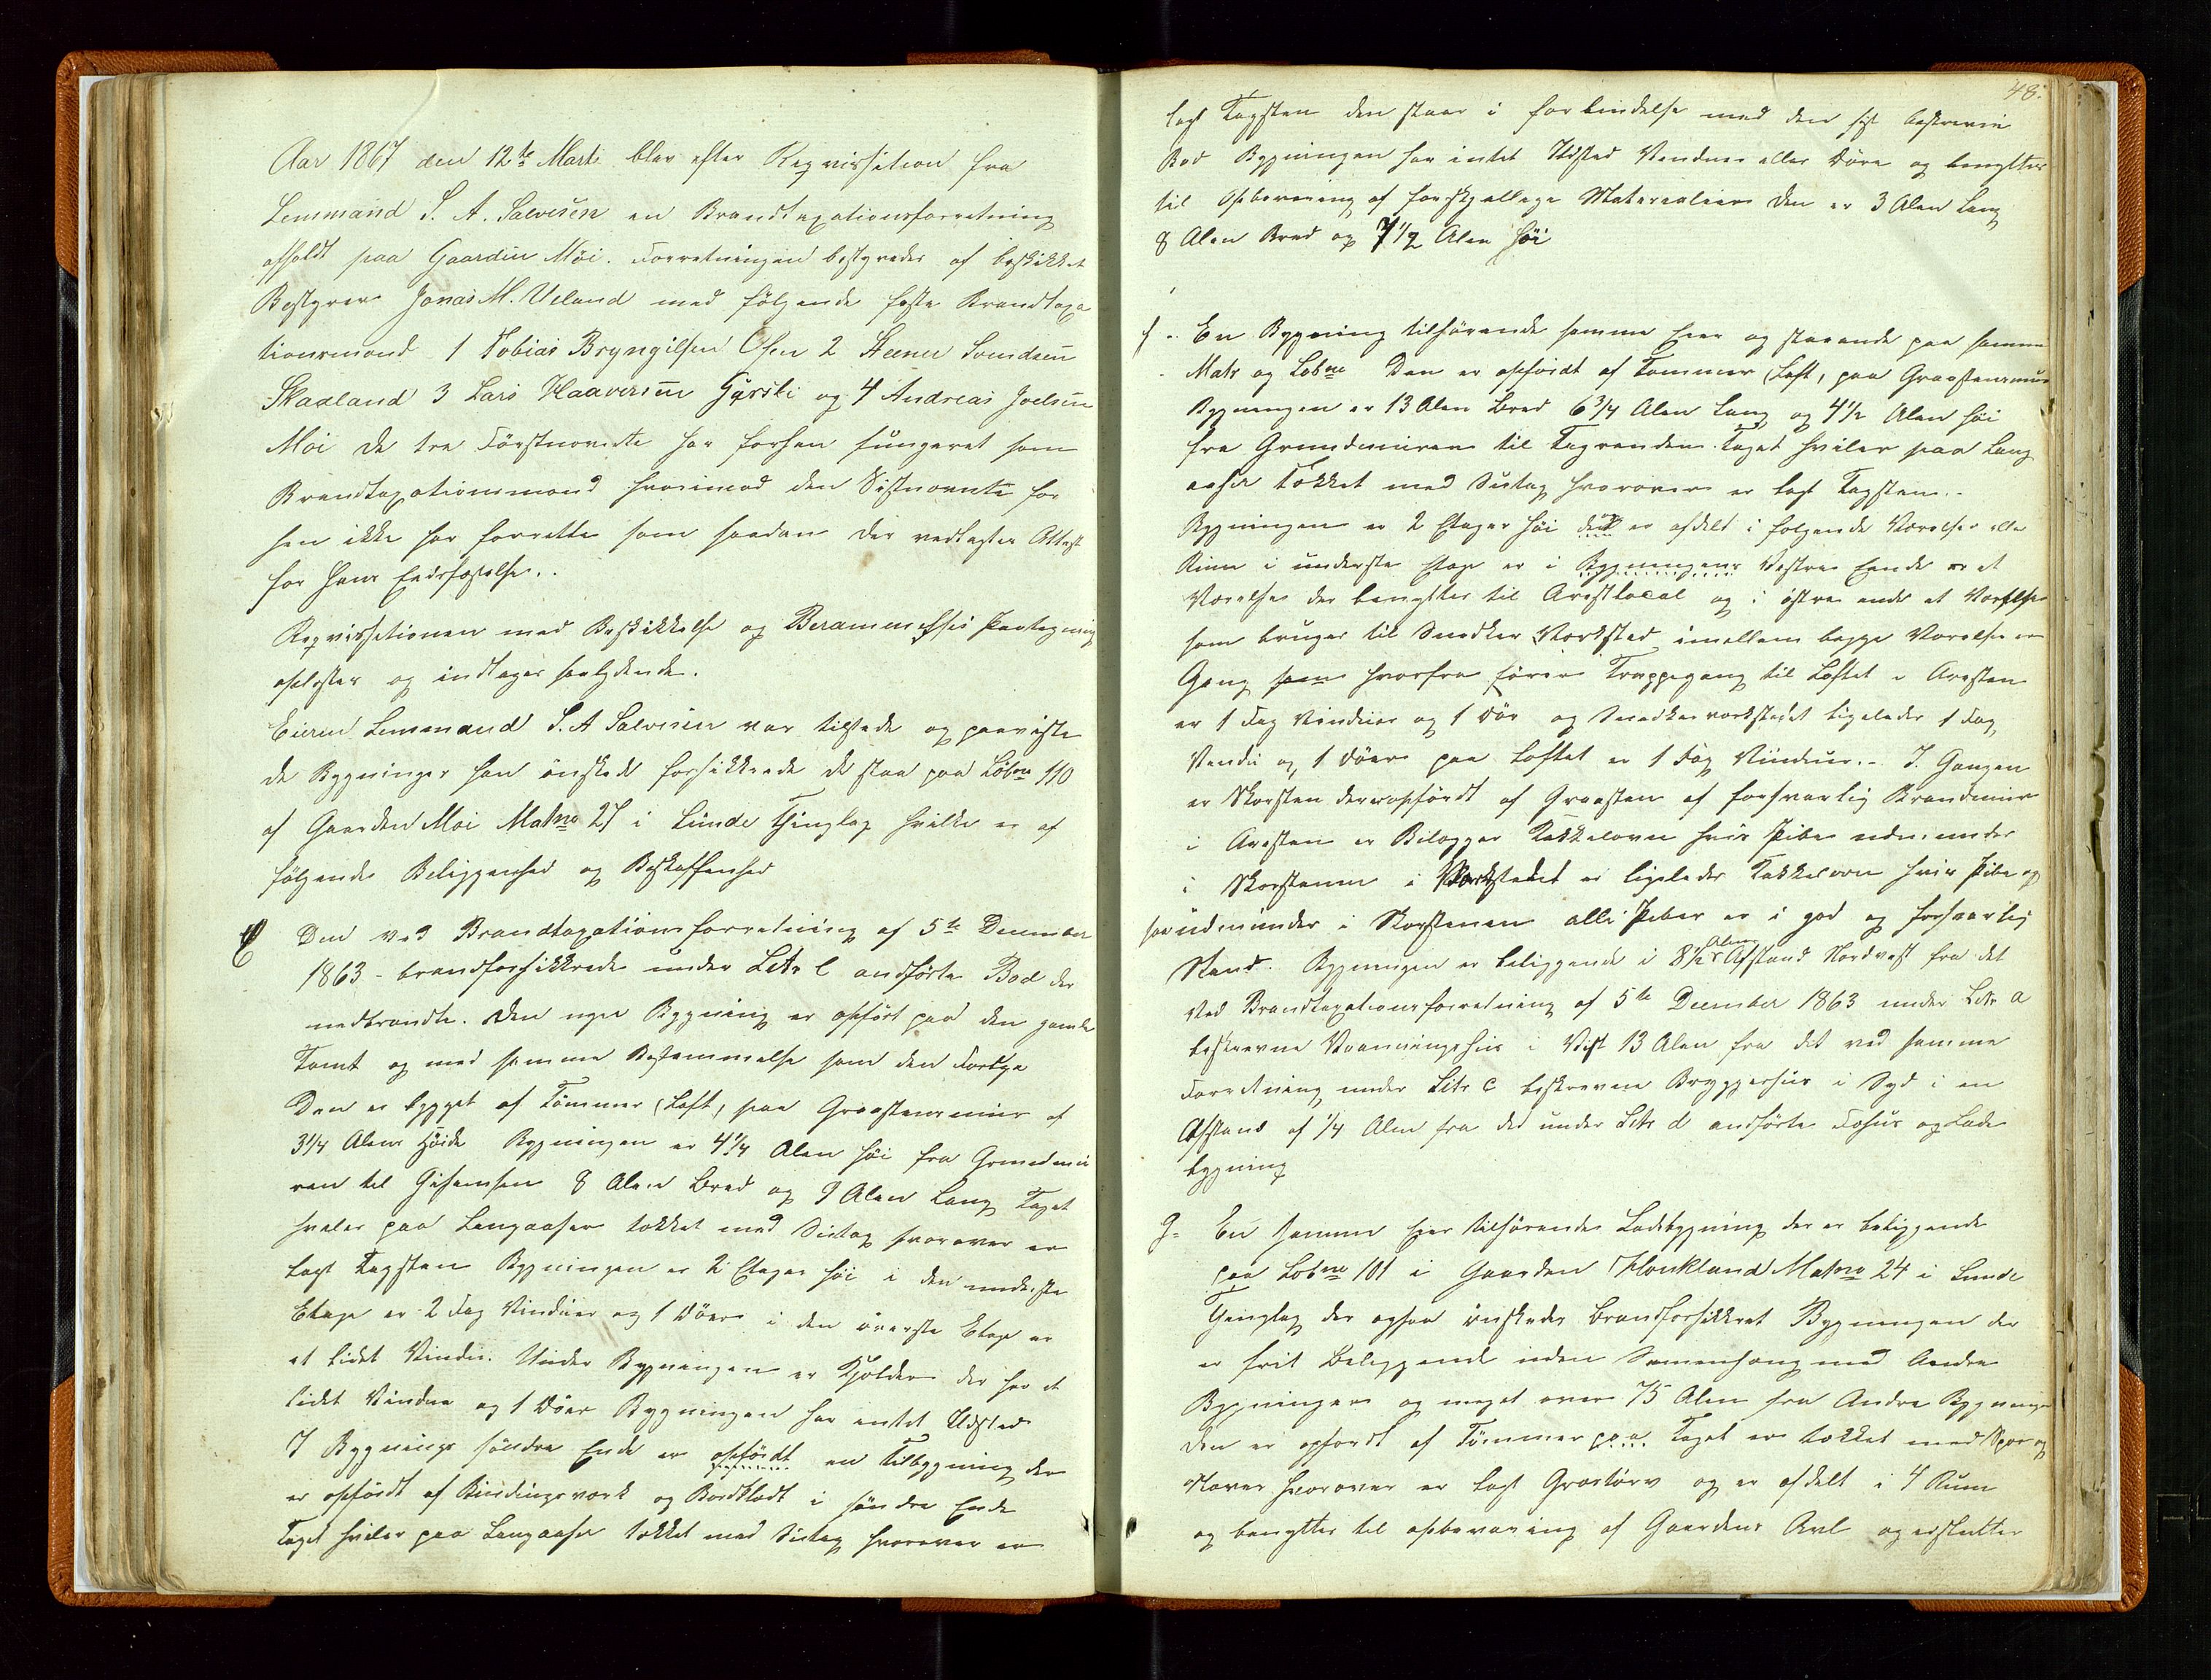 Aar 1867 den 12te Marti blev efter Reqvisition fra
Lensmand S. A. Salvesen en Brandtaxationsforretning
afholdt paa Gaarden Moi. Forretningen bestyredes af beskikket
Bestyrer Jonas M. Ueland med følgende faste Brandtaxa
tionsmænd 1 Tobias Bryngilsen Osen 2 Steener Svendsen
Skaaland 3 Lars Haaversen Gyrski og 4 Andreas Joelsen
Moi de tre Førstnevnte har forhen fungeret som
Brandtaxationsmænd hvorimod den Sistnevnte for
hen ikke har forrettet som saadan der vedlagtes Attest
for hans Edsfæstelse..
Reqvisitionen med Beskikkelse og Berammelses Paategning
oplæstes og indtages saalydende.
Eieren Lensmand S. A Salvesen var tilstede og paaviste
de Bygninger han ønskede forsikkrede de staa paa Løbno 110
af Gaarden Moi Matno 27 i Lunde Thinglag hvilke er af
følgende Beliggenhed og Beskaffenhed
E Den ved Brandtaxationsforretning af 5te December
1863 - brandforsikkrede under Litr e andførte Bod der
nedbrændte. Den nye Bygning er opført paa den gamle
Tomt og med samme Bestemmelse som den Forrige
Den er bygget af Tømmer (Laft, paa Graastensmuur af
3 1/4 Alens Høide Bygningen er 4 1/4 Alen høi fra Grundmu
ren til Gesimsen 8 Alen Bred og 9 Alen Lang Taget
hviler paa Langaaser tækket med Sutag hvorover er
lagt Tagsten Bygningen er 2 Etager høi i den underste
Etage er 2 Fag Vinduer og 1 Døer i den øverste Etage er
et lidet Vindu. Under Bygningen er Kjælder der har et
lidet Vindue og 1 Døer Bygningen har intet Ildsted
I Bygnings søndre Ende er opfördt en Tilbygning der
er opfördt af Bindingsværk og Bordklædt i søndre Ende
Taget hviler paa Langaaser tækket med Sutag hvorover er
48.
lagt Tagsten den staar i forbindelse med den sist beskrevne
Bod Bygningen har intet Ildsted Venduer eller Døre og benyttes
til Opbevaring af forskjellige Materialier Den er 3 Alen Lang
8 Alen Bred og 7 1/2 Alen høi
f - En Bygning tilhørende samme Eier og staaende paa samme
Matr og Løbno Den er opfördt af Tømmer (Laft, paa Graastensmuur
Bygningen er 13 Alen Bred 6 3/4 Alen Lang og 4 1/2 Alen høi
fra Grundmuren til Tagrenden. Taget hviler paa Lang
aaser tækket med Sutag hvorover er lagt Tagsten..
Bygningen er 2 Etager høi den er afdelt i følgende Værelser eller
Rum i underste Etage er i Bygningens Vestre Ende er et
Værelse der benyttes til Arestlocal og i østre ende et Værelse
som bruges til Snedker Værksted imellem begge Værelser er
Gang som hvorfra fører Trappegang til Loftet i Aresten
er 1 Fag Vinduer og 1 Dör og Snedkerværkstedet ligeledes 1 Fag
Vendu og 1 Døer paa Loftet er 1 Fag Vindue.- I Gangen
er Skorsten der er opfördt af Graasten af forsvarlig Brandmuur
i Aresten er Bilægger Kakkelovn hvis Pibe udmunder
i Skorstenen i Værkstedet er ligeledes Kakkelovn hvis Pibe og
saa udmunder i Skorstenen alle Piber er i god og forsvarlig
Stand. Bygningen er beliggende i 8 1/2 Alens Afstand Nordvest fra det
ved Brandtaxationsforretning af 5te December 1863 under Litr a
beskrevne Vaaningshus i Vest 13 Alen fra det ved samme
Forretning under Litr c beskrevne Bryggerhus i Syd i en
Afstand af 1/4 Alen fra det under Litr d andførte Fohus og Lade
bygning
g= En samme Eier tilhørende Ladebygning der er beliggende
paa Løbno 101 i Gaarden Houkland Matno 24 i Lunde
Thinglag der ogsaa ønskedes brandforsikkret Bygningen der
er frit beliggende uden Samenhang med Andre
Bygninger og meget over 75 Alen fra Andre Bygninger
Den er opfördt af Tømmer paa Taget er tækket med Spær og
Næver hvorover er lagt Græstørv og er afdelt i 4 Rum
og benyttes til opbevaring af Gaardens Avl og erstatter